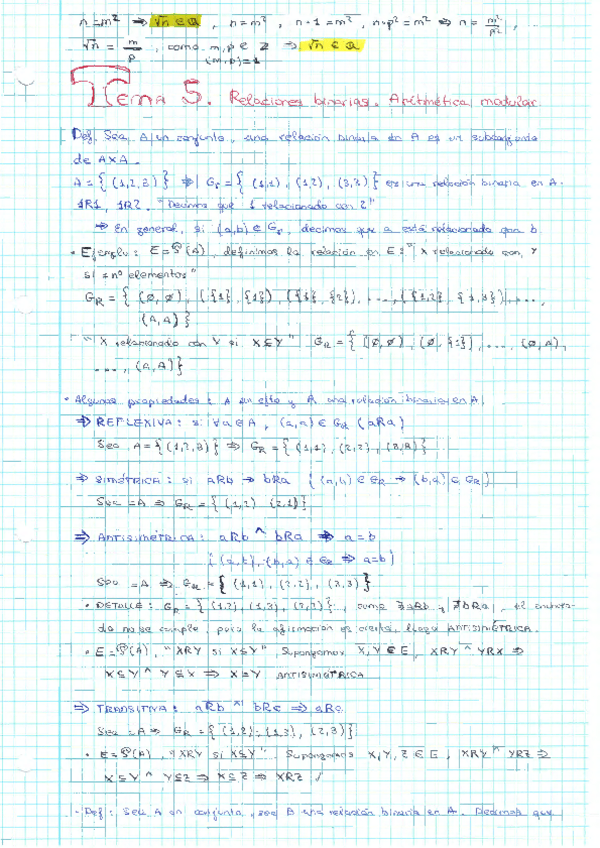 n=m² ⇒ √n ∈ Q, n=m², n·1=m², n·p²=m² ⇔ n = m²/p²,
√n = m/p, como m,p ∈ Z ⇒ √n ∈ Q
(m,p)=1
TEMA 5. Relaciones binarias. Aritmética modular.
Def: Sea A un conjunto, una relación binaria en A es un subconjunto
de AxA.
A={(1,2,3)} ⇒ G_R={(1,1),(1,2),(3,3)} es una relación binaria en A.
1R1, 1R2. "Decimos que 1 relacionado con 2"
⇒ En general, si (a,b) ∈ G_R, decimos que a está relacionado con b
• Ejemplo: E=P(A), definimos la relación en E: "X relacionado con Y
si = nº elementos"
G_R={(∅,∅),({1},{1}),({1},{2}),...,({1,2},{1,3}),...,
(A,A)}
"X relacionado con Y si X⊆Y" G_R={(∅,∅),(∅,{1}),...,(∅,A),
...,(A,A)}
• Algunas propiedades: A un cjto y R una relación binaria en A.
⇒ REFLEXIVA: si ∀a∈A, (a,a)∈G_R (aRa)
Sea A={(1,2,3)} ⇒ G_R={(1,1),(2,2),(3,3)}
⇒ SIMÉTRICA: si aRb → bRa {(a,b)∈G_R → (b,a)∈G_R}
Sea =A ⇒ G_R={(1,2),(2,1)}
⇒ ANTISIMÉTRICA: aRb ^ bRa ⇒ a=b
{(a,b),(b,a)∈G_R ⇒ a=b}
Sea =A ⇒ G_R={(1,1),(2,2),(3,3)}
• DETALLE: G_R={(1,2),(1,3),(2,2)}, como ∃aRb y ∄bRa, el enuncia-
do no se cumple, pero la afirmación es cierta, luego ANTISIMÉTRICA.
• E=P(A), "XRY si X⊆Y". Supongamos X,Y∈E, XRY ^ YRX ⇒
X⊆Y ^ Y⊆X ⇒ X=Y ANTISIMÉTRICA
⇒ TRANSITIVA: aRb ^ bRc ⇒ aRc
Sea =A ⇒ G_R={(1,2),(1,3),(2,3)}
• E=P(A), "XRY si X⊆Y". Supongamos X,Y,Z∈E, XRY ^ YRZ ⇒
X⊆Y ^ Y⊆Z ⇒ X⊆Z ⇒ XRZ ✓
• Def: Sea A un conjunto, sea R una relación binaria en A. Decimos que